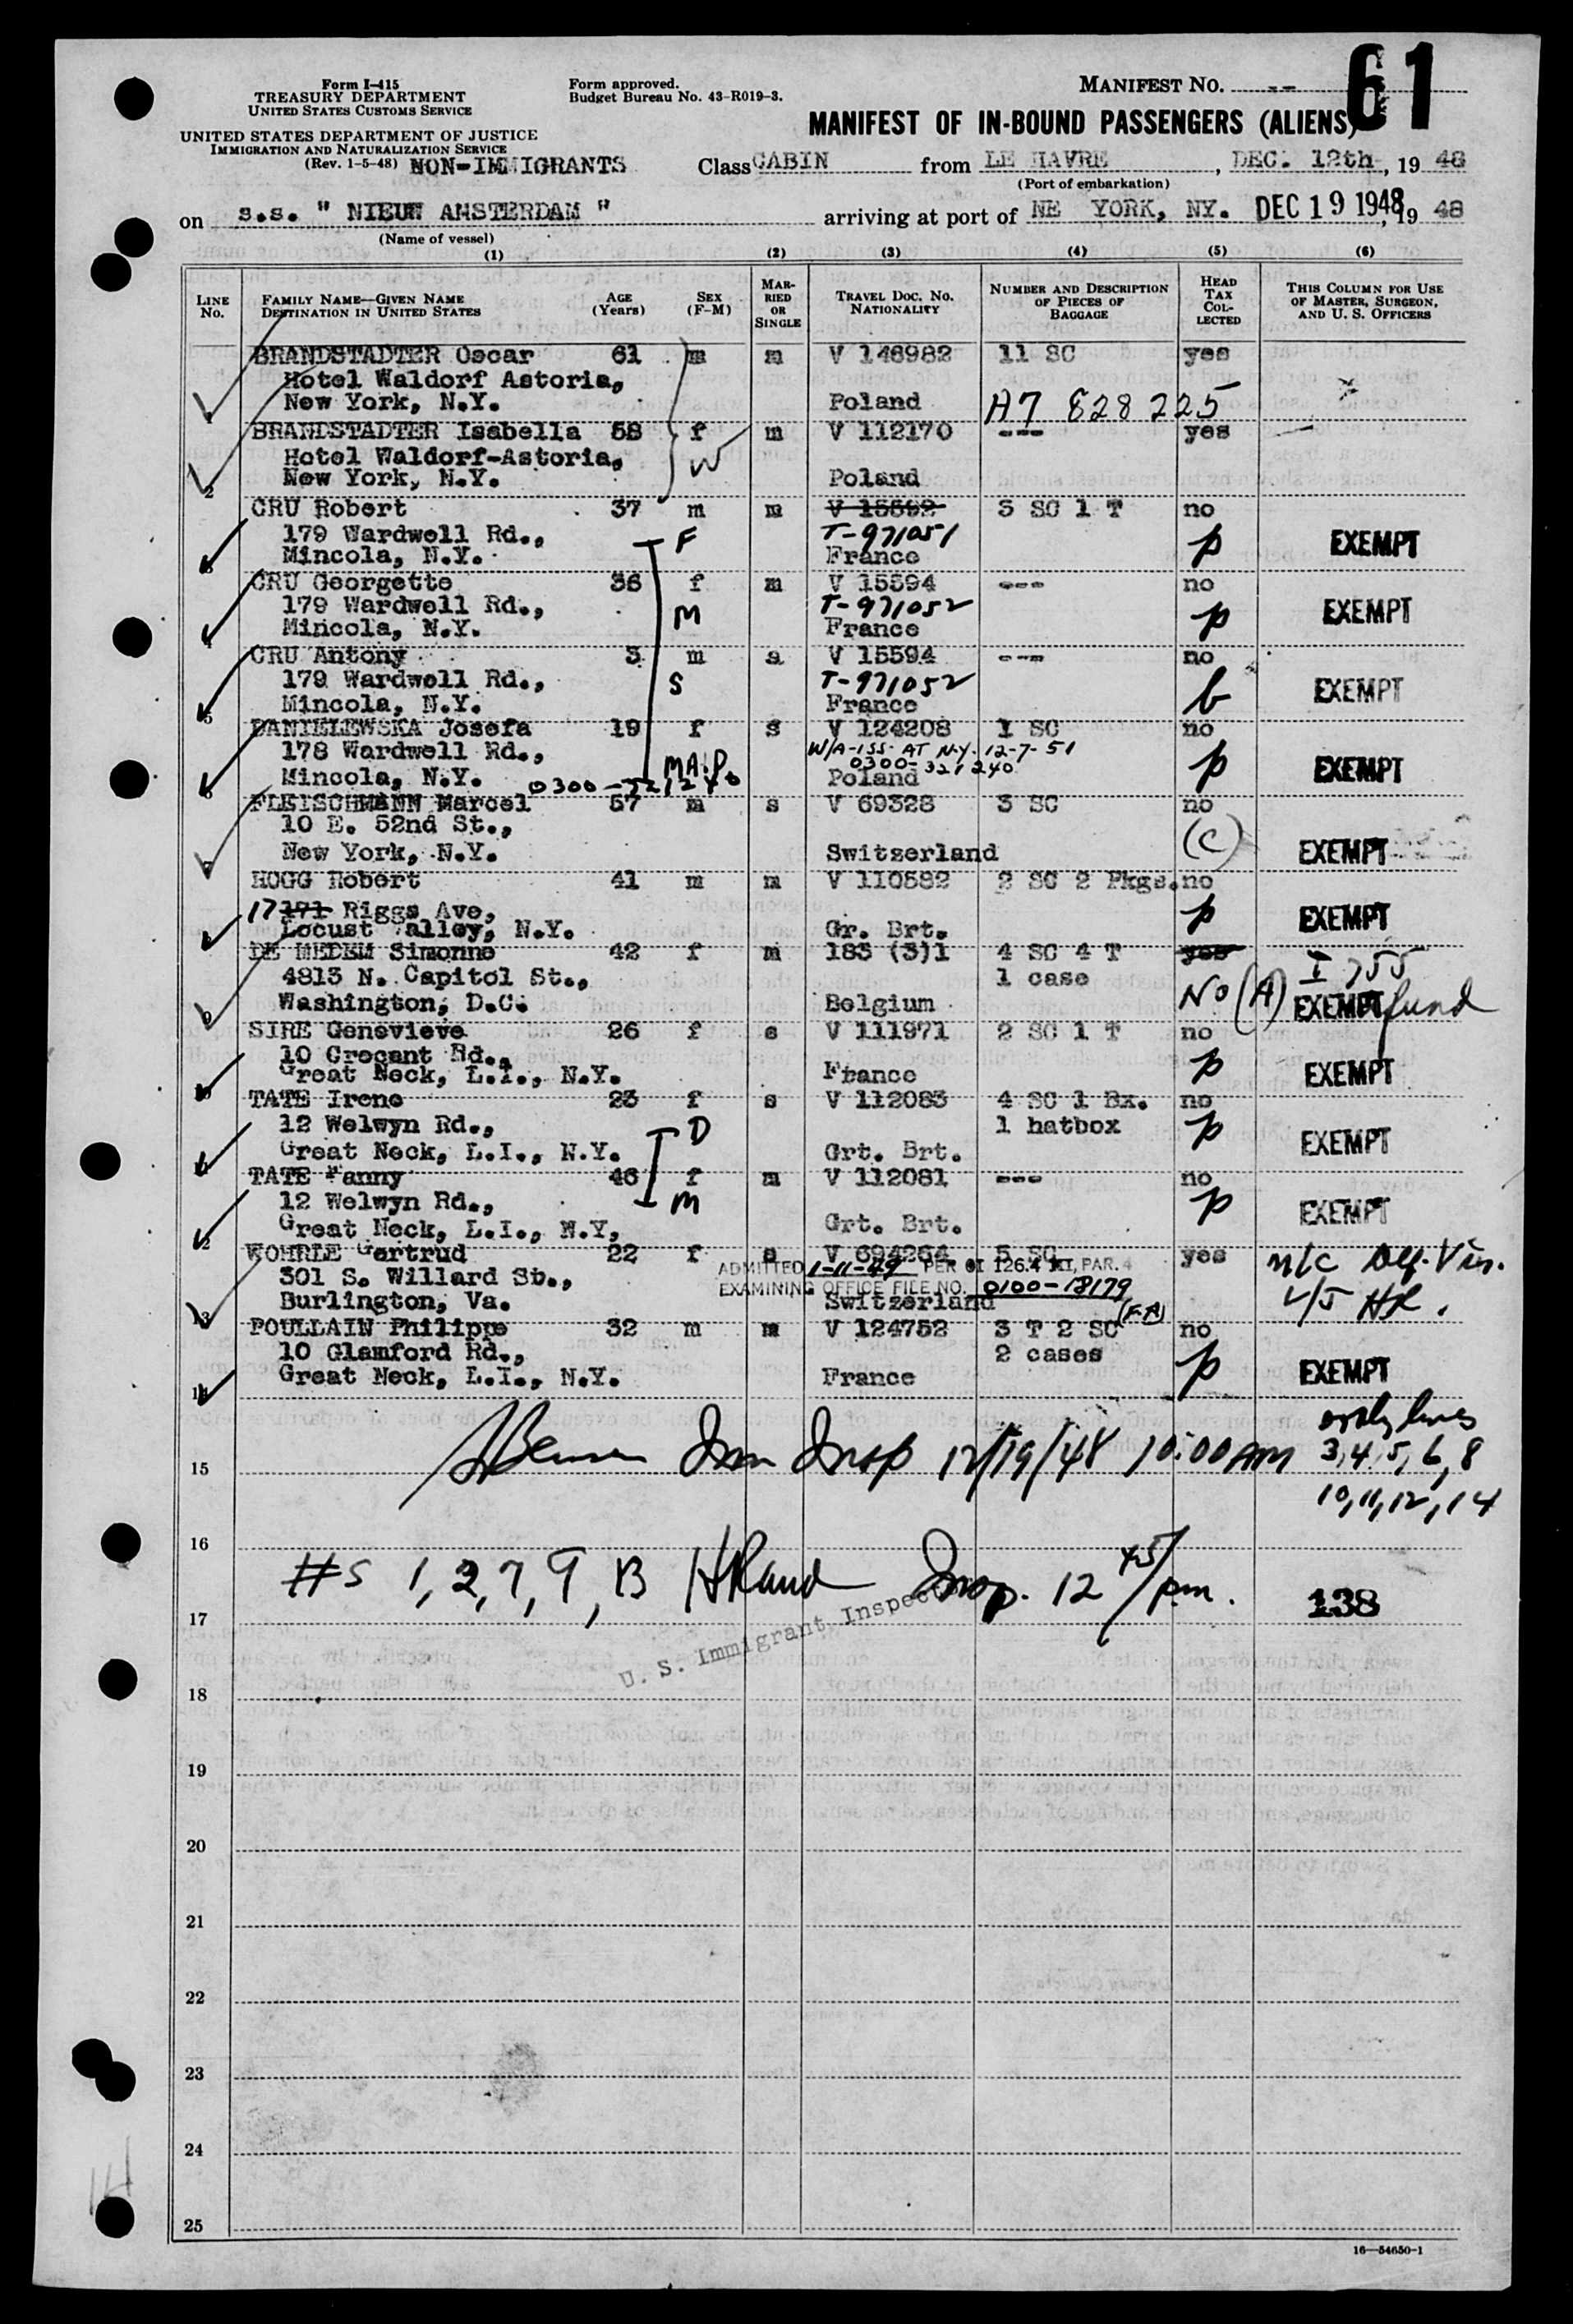 61
Form I-415
TREASURY DEPARTMENT
UNITED STATES CUSTOMS SERVICE
Form approved.
Budget Bureau No. 43-R019-3.
MANIFEST NO. --
UNITED STATES DEPARTMENT OF JUSTICE
IMMIGRATION AND NATURALIZATION SERVICE
(Rev. 1-5-48) NON-IMMIGRANTS
MANIFEST OF IN-BOUND PASSENGERS (ALIENS)
Class CABIN from LE HAVRE, DEC. 12th, 19 48
(Port of embarkation)
on s.s. " NIEUW AMSTERDAM " arriving at port of NE YORK, NY. DEC 19 1948, 19 48
(Name of vessel)
(1) (2) (3) (4) (5) (6)
LINE No. FAMILY NAME—GIVEN NAME DESTINATION IN UNITED STATES AGE (Years) SEX (F-M) MARRIED OR SINGLE TRAVEL DOC. NO. NATIONALITY NUMBER AND DESCRIPTION OF PIECES OF BAGGAGE HEAD TAX COLLECTED THIS COLUMN FOR USE OF MASTER, SURGEON, AND U. S. OFFICERS
BRANDSTADTER Oscar 61 m m V 146982 11 SC yes
Hotel Waldorf Astoria,
New York, N.Y. Poland A7 828 225
BRANDSTADTER Isabella 58 f m V 112170 --- yes
Hotel Waldorf-Astoria, W
2 New York, N.Y. Poland
CRU Robert 37 m m V 15592 3 SC 1 T no
179 Wardwell Rd., F T-971051
3 Mincola, N.Y. France p EXEMPT
CRU Georgette 36 f m V 15594 --- no
179 Wardwell Rd., M T-971052
4 Mincola, N.Y. France p EXEMPT
CRU Antony 3 m s V 15594 --- no
179 Wardwell Rd., S T-971052
5 Mincola, N.Y. France b EXEMPT
DANIELEWSKA Josefa 19 f s V 124208 1 SC no
178 Wardwell Rd., W/A-ISS. AT N.Y. 12-7-51
0300-321240
6 Mincola, N.Y. 0300-321240 MAID Poland p EXEMPT
FLEISCHMANN Marcel 57 m s V 69328 3 SC no
10 E. 52nd St.,
7 New York, N.Y. Switzerland (C) EXEMPT
HOGG Robert 41 m m V 110582 2 SC 2 Pkgs. no
17 171 Riggs Ave, p EXEMPT
Locust Valley, N.Y. Gr. Brt.
DE MEDEM Simonne 42 f m 183 (3)1 4 SC 4 T yes
4813 N. Capitol St., 1 case I 755
9 Washington, D.C. Belgium No (A) EXEMPT fund
SIRE Genevieve 26 f s V 111971 2 SC 1 T no
10 Grocant Rd.,
10 Great Neck, L.I., N.Y. France p EXEMPT
TATE Irene 23 f s V 112083 4 SC 1 Bx. no
12 Welwyn Rd., D 1 hatbox p
11 Great Neck, L.I., N.Y. Grt. Brt. EXEMPT
TATE Fanny 46 f m V 112081 --- no
12 Welwyn Rd., M p
12 Great Neck, L.I., N.Y, Grt. Brt. EXEMPT
WOHRLE Gertrud 22 f s V 694264 5 SC yes
ADMITTED 1-11-49 PER OI 126.4 XI, PAR. 4
301 S. Willard St.,
EXAMINING OFFICE FILE NO. 0100-18179
13 Burlington, Va. Switzerland
POULLAIN Philippe 32 m m V 124752 3 T 2 SC no
10 Glamford Rd., 2 cases
14 Great Neck, L.I., N.Y. France p EXEMPT
only lines
15 Imm Insp 12/19/48 10:00 AM 3, 4, 5, 6, 8
10, 11, 12, 14
16
#s 1, 2, 7, 9, 13 Insp. 12 45/pm.
17 138
U. S. Immigrant Inspector
18
19
20
21
22
23
24
14
25
16—54650-1